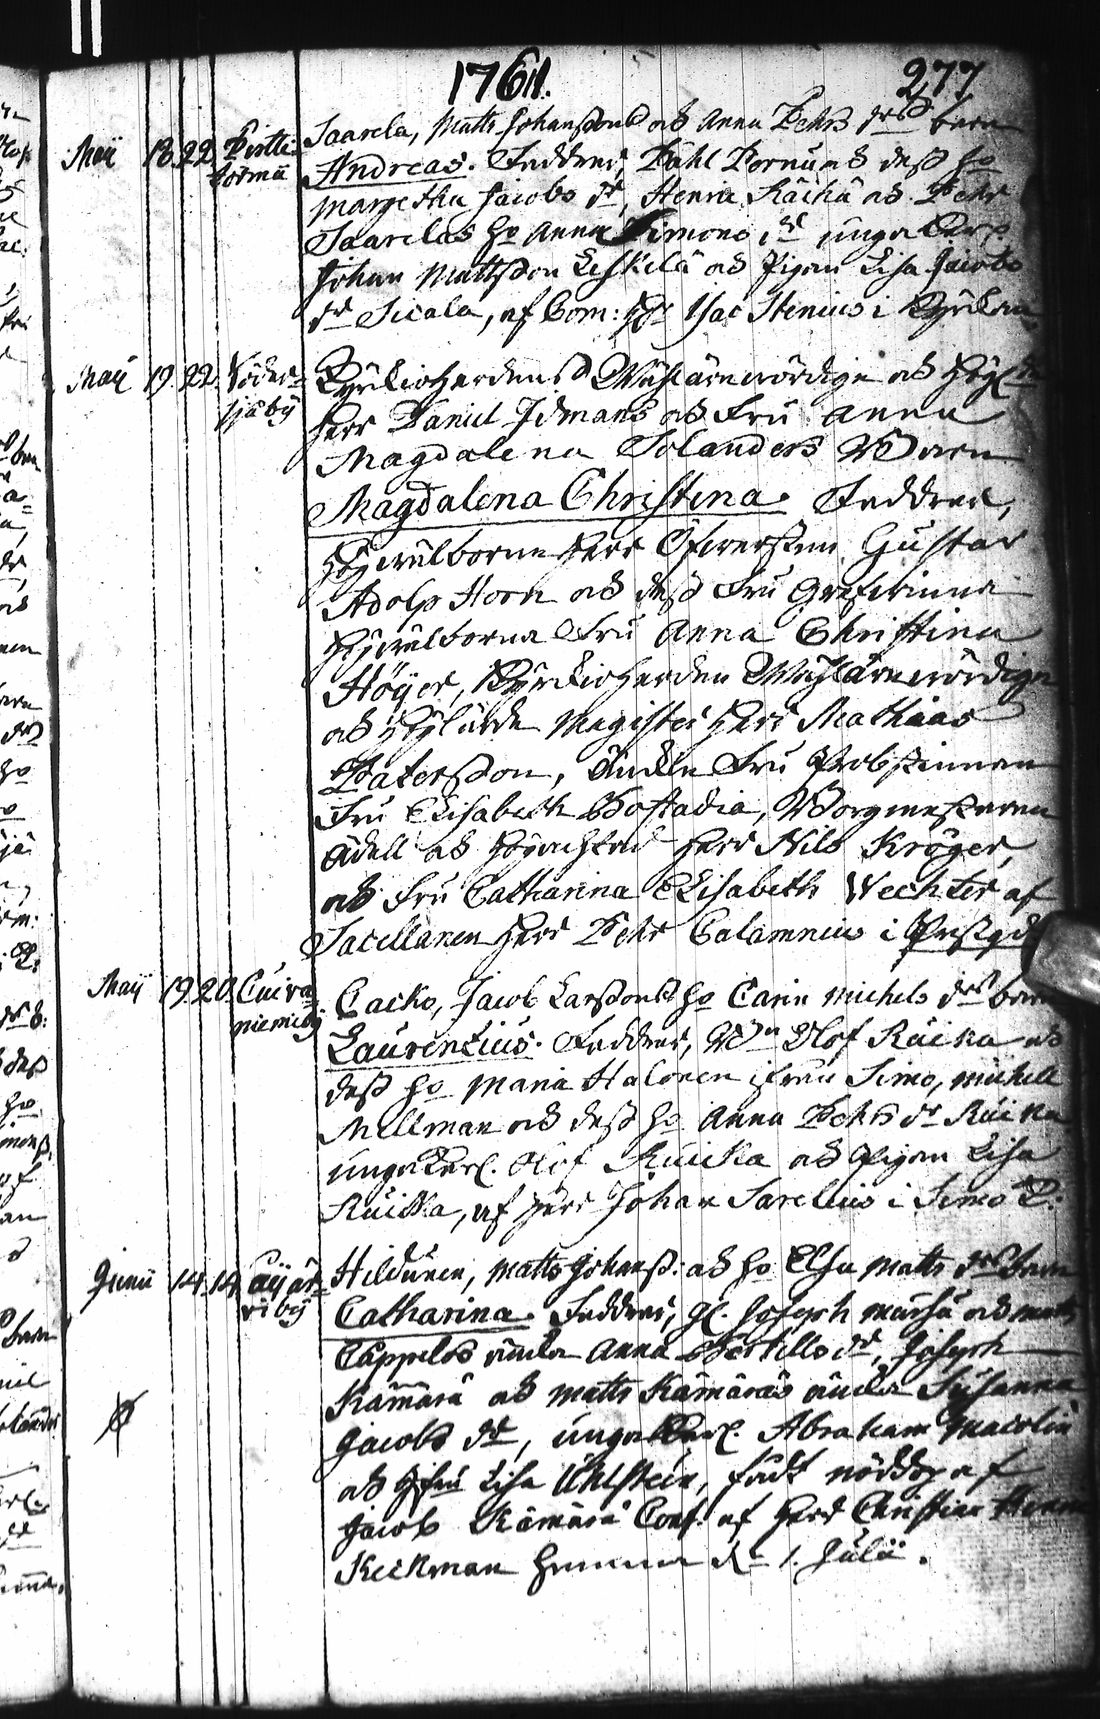 1761. 277
Maij 18 22 Pertti- Saarela, Matts Johanssons och Anna Pehrs drs barn
Andreas. Faddrar, Påhl Pornu och dess ho
Margetha Jacobs dr, Henra Räihä och Pehr
Saarelas ho Anna Simons dr unga Karl.
Johan Mattsson Leskelä och Pigan Lisa Jacobs
dr Sicala, af Com: Hr Isac Stenius i Kyrkan.
Maij 19. 22. Söder- Kyrkioherdens Wählärewördige och Högl
sjäby Herr Daniel Idmans och Fru Anna
Magdalena Solanders Barn
Magdalena Christina. Faddrar,
Högwälborne Herr Öfwersten Gustav
Adolp Horn och dess Fru Grefwinna
Högwälborna Fru Anna Christina
Höijer, Kyrkioherden Wählärewördige
och Höglärde Magister Herr Mathias
Paterson, Änke Fru Probstinnan
Fru Elisabeth Bostadia, Borgmestaren
Ädell och Högachtad Herr Nils Kröger,
och Fru Catharina Elisabeth Wechter af
Sacellanen Herr Pehr Calamnius i Prstgd
Maij 19. 20. Cuiva- Cacko, Jacob Larssons ho Carin Michels drs barn
niemiby Laurentius. Faddrar, Bn Olof Kuicka och
dess ho Maria Halonen ifrån Simo, Michell
Mellman och dess ho Anna Pehrs dr Kuicka
unga Karl. Olof Kuicka och Pigan Lisa
Kuicka, af Herr Johan Sarelius i Simo P.
Junii 14. 14. Hildunen, Matts Johanss: och ho Elsa Matts drs barn
ri by Catharina. Faddrar, Gl. Joseph Marsu och Matts
Cappelos änka Anna Bertills dr, Joseph
Kämärä och Matts Kämäräs änka Susanna
Jacobs dr, unga Karl. Abraham Macolin
och Jfru Lisa Uhlstein, född nöddop af
Jacob Kämärä Conf. af Herr Christian
Keckman hemma d. 1. Julii.